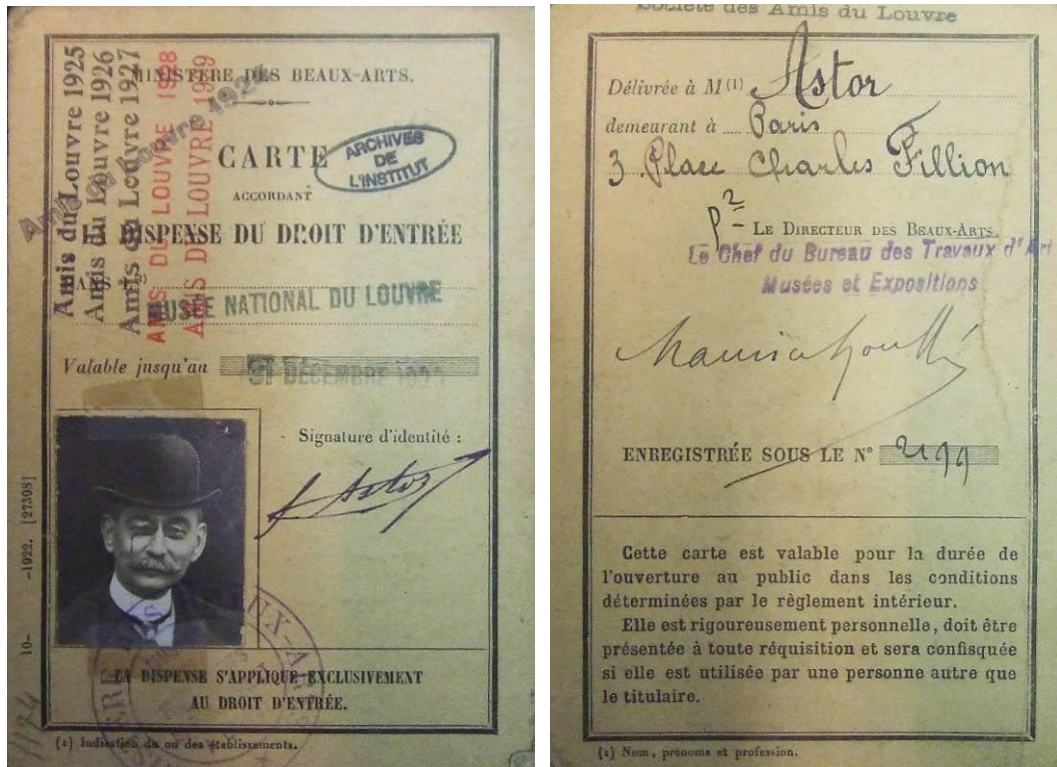 MINISTÈRE DES BEAUX-ARTS.
Amis du Louvre 1925
Amis du Louvre 1926
Amis du Louvre 1927
AMIS DU LOUVRE 1928
AMIS DU LOUVRE 1929
Amis du Louvre
CARTE
ARCHIVES
DE
L'INSTITUT
ACCORDANT
LA DISPENSE DU DROIT D'ENTRÉE
MUSÉE NATIONAL DU LOUVRE
Valable jusqu'au 31 DÉCEMBRE
Signature d'identité :
Astor
10- -1922. [27398]
LA DISPENSE S'APPLIQUE EXCLUSIVEMENT
AU DROIT D'ENTRÉE.
(1) Indication du ou des établissements.
Société des Amis du Louvre
Délivrée à M(1) Astor
demeurant à Paris
3 Place Charles Fillion
Le Directeur des Beaux-Arts.
Le Chef du Bureau des Travaux d'Art
Musées et Expositions
ENREGISTRÉE SOUS LE N° 2199
Cette carte est valable pour la durée de
l'ouverture au public dans les conditions
déterminées par le règlement intérieur.
Elle est rigoureusement personnelle, doit être
présentée à toute réquisition et sera confisquée
si elle est utilisée par une personne autre que
le titulaire.
(1) Nom, prénoms et profession.